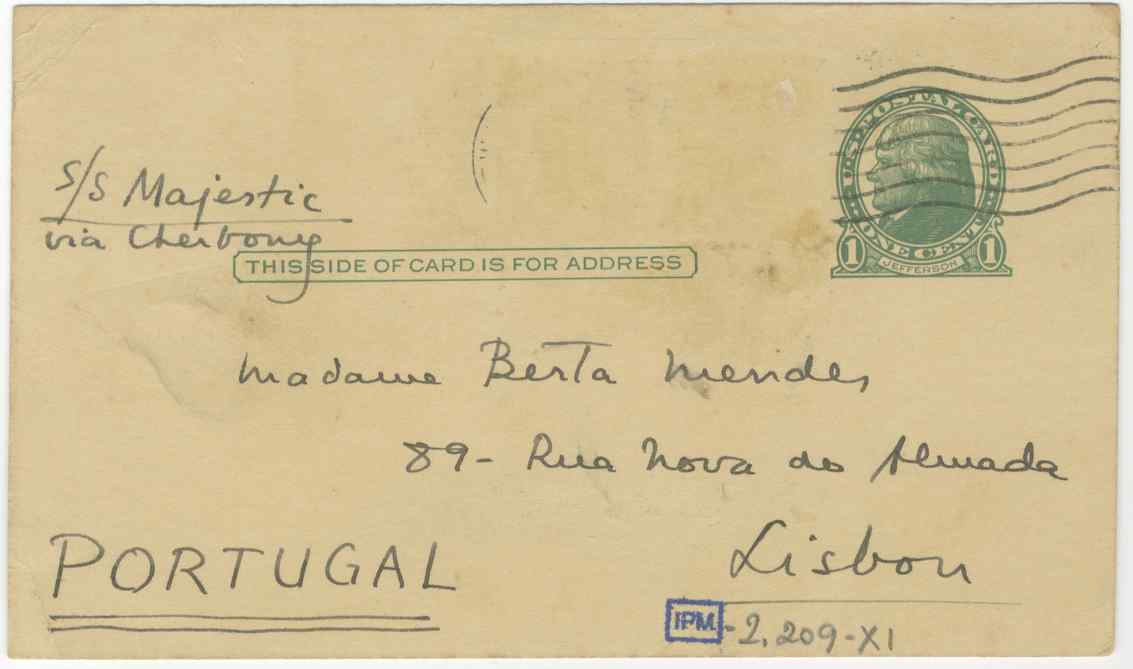 U.S. POSTAL CARD
1 ONE CENT 1
JEFFERSON
S/S Majestic
via Cherbourg
THIS SIDE OF CARD IS FOR ADDRESS
Madame Berta Mendes
89- Rua Nova do Almada
Lisbon
PORTUGAL
IPM -2.209-XI